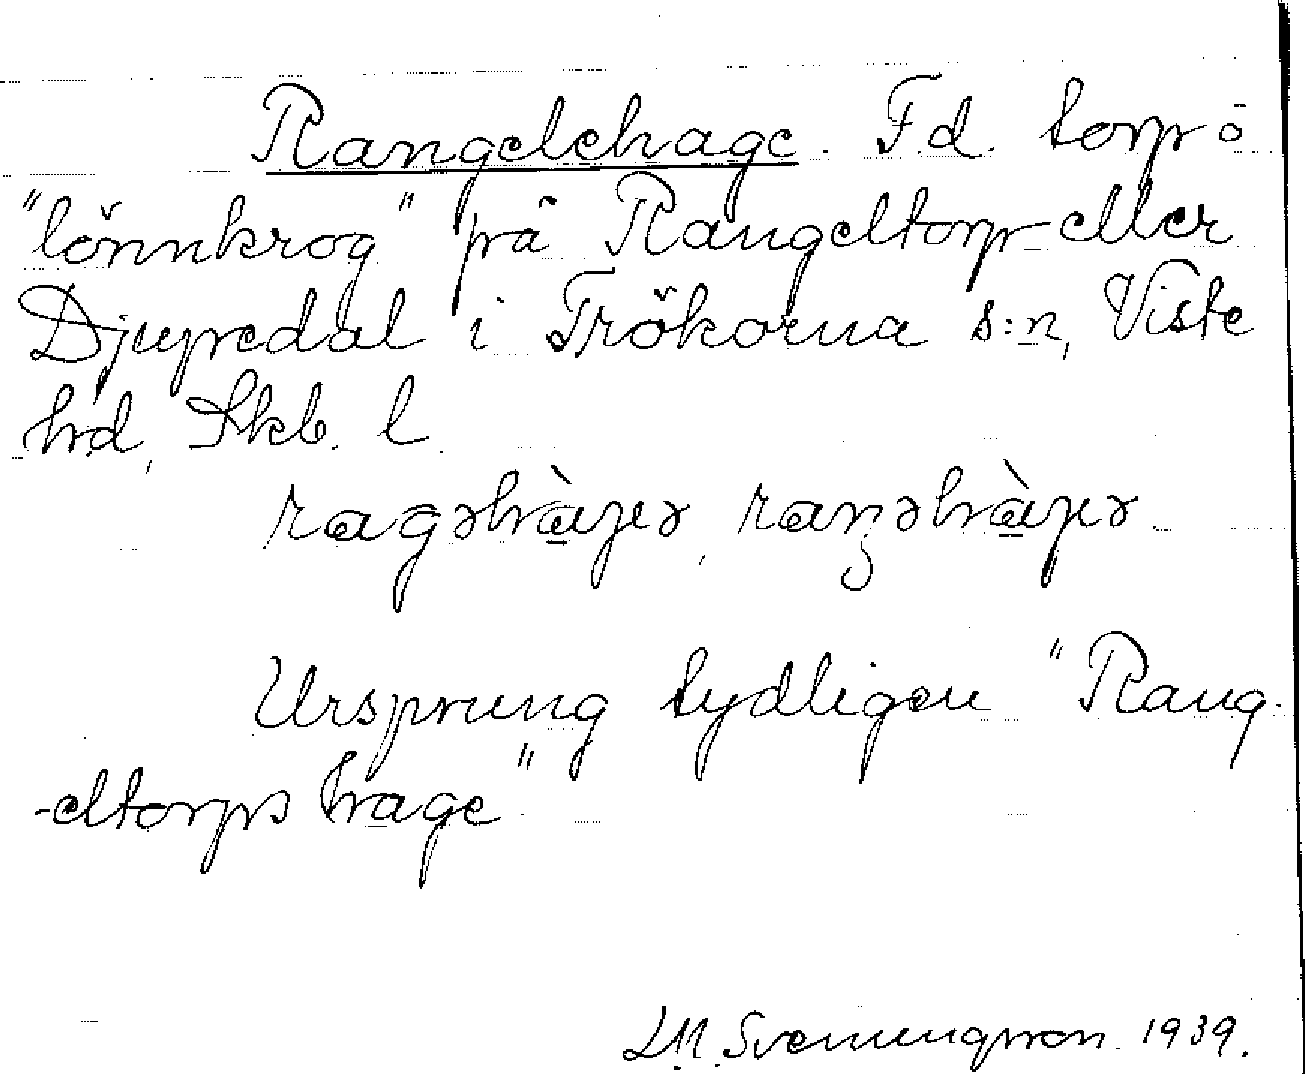 Rangelehage. F.d. torp o
"lönnkrog" på Rangeltorp eller
Djupedal i Trökörna s:n, Viste
hd, Skb. l.
ragəhàgə, raŋəhàgə
Ursprung tydligen "Rang-
-eltorps hage"
LM. Svenungsson 1939.